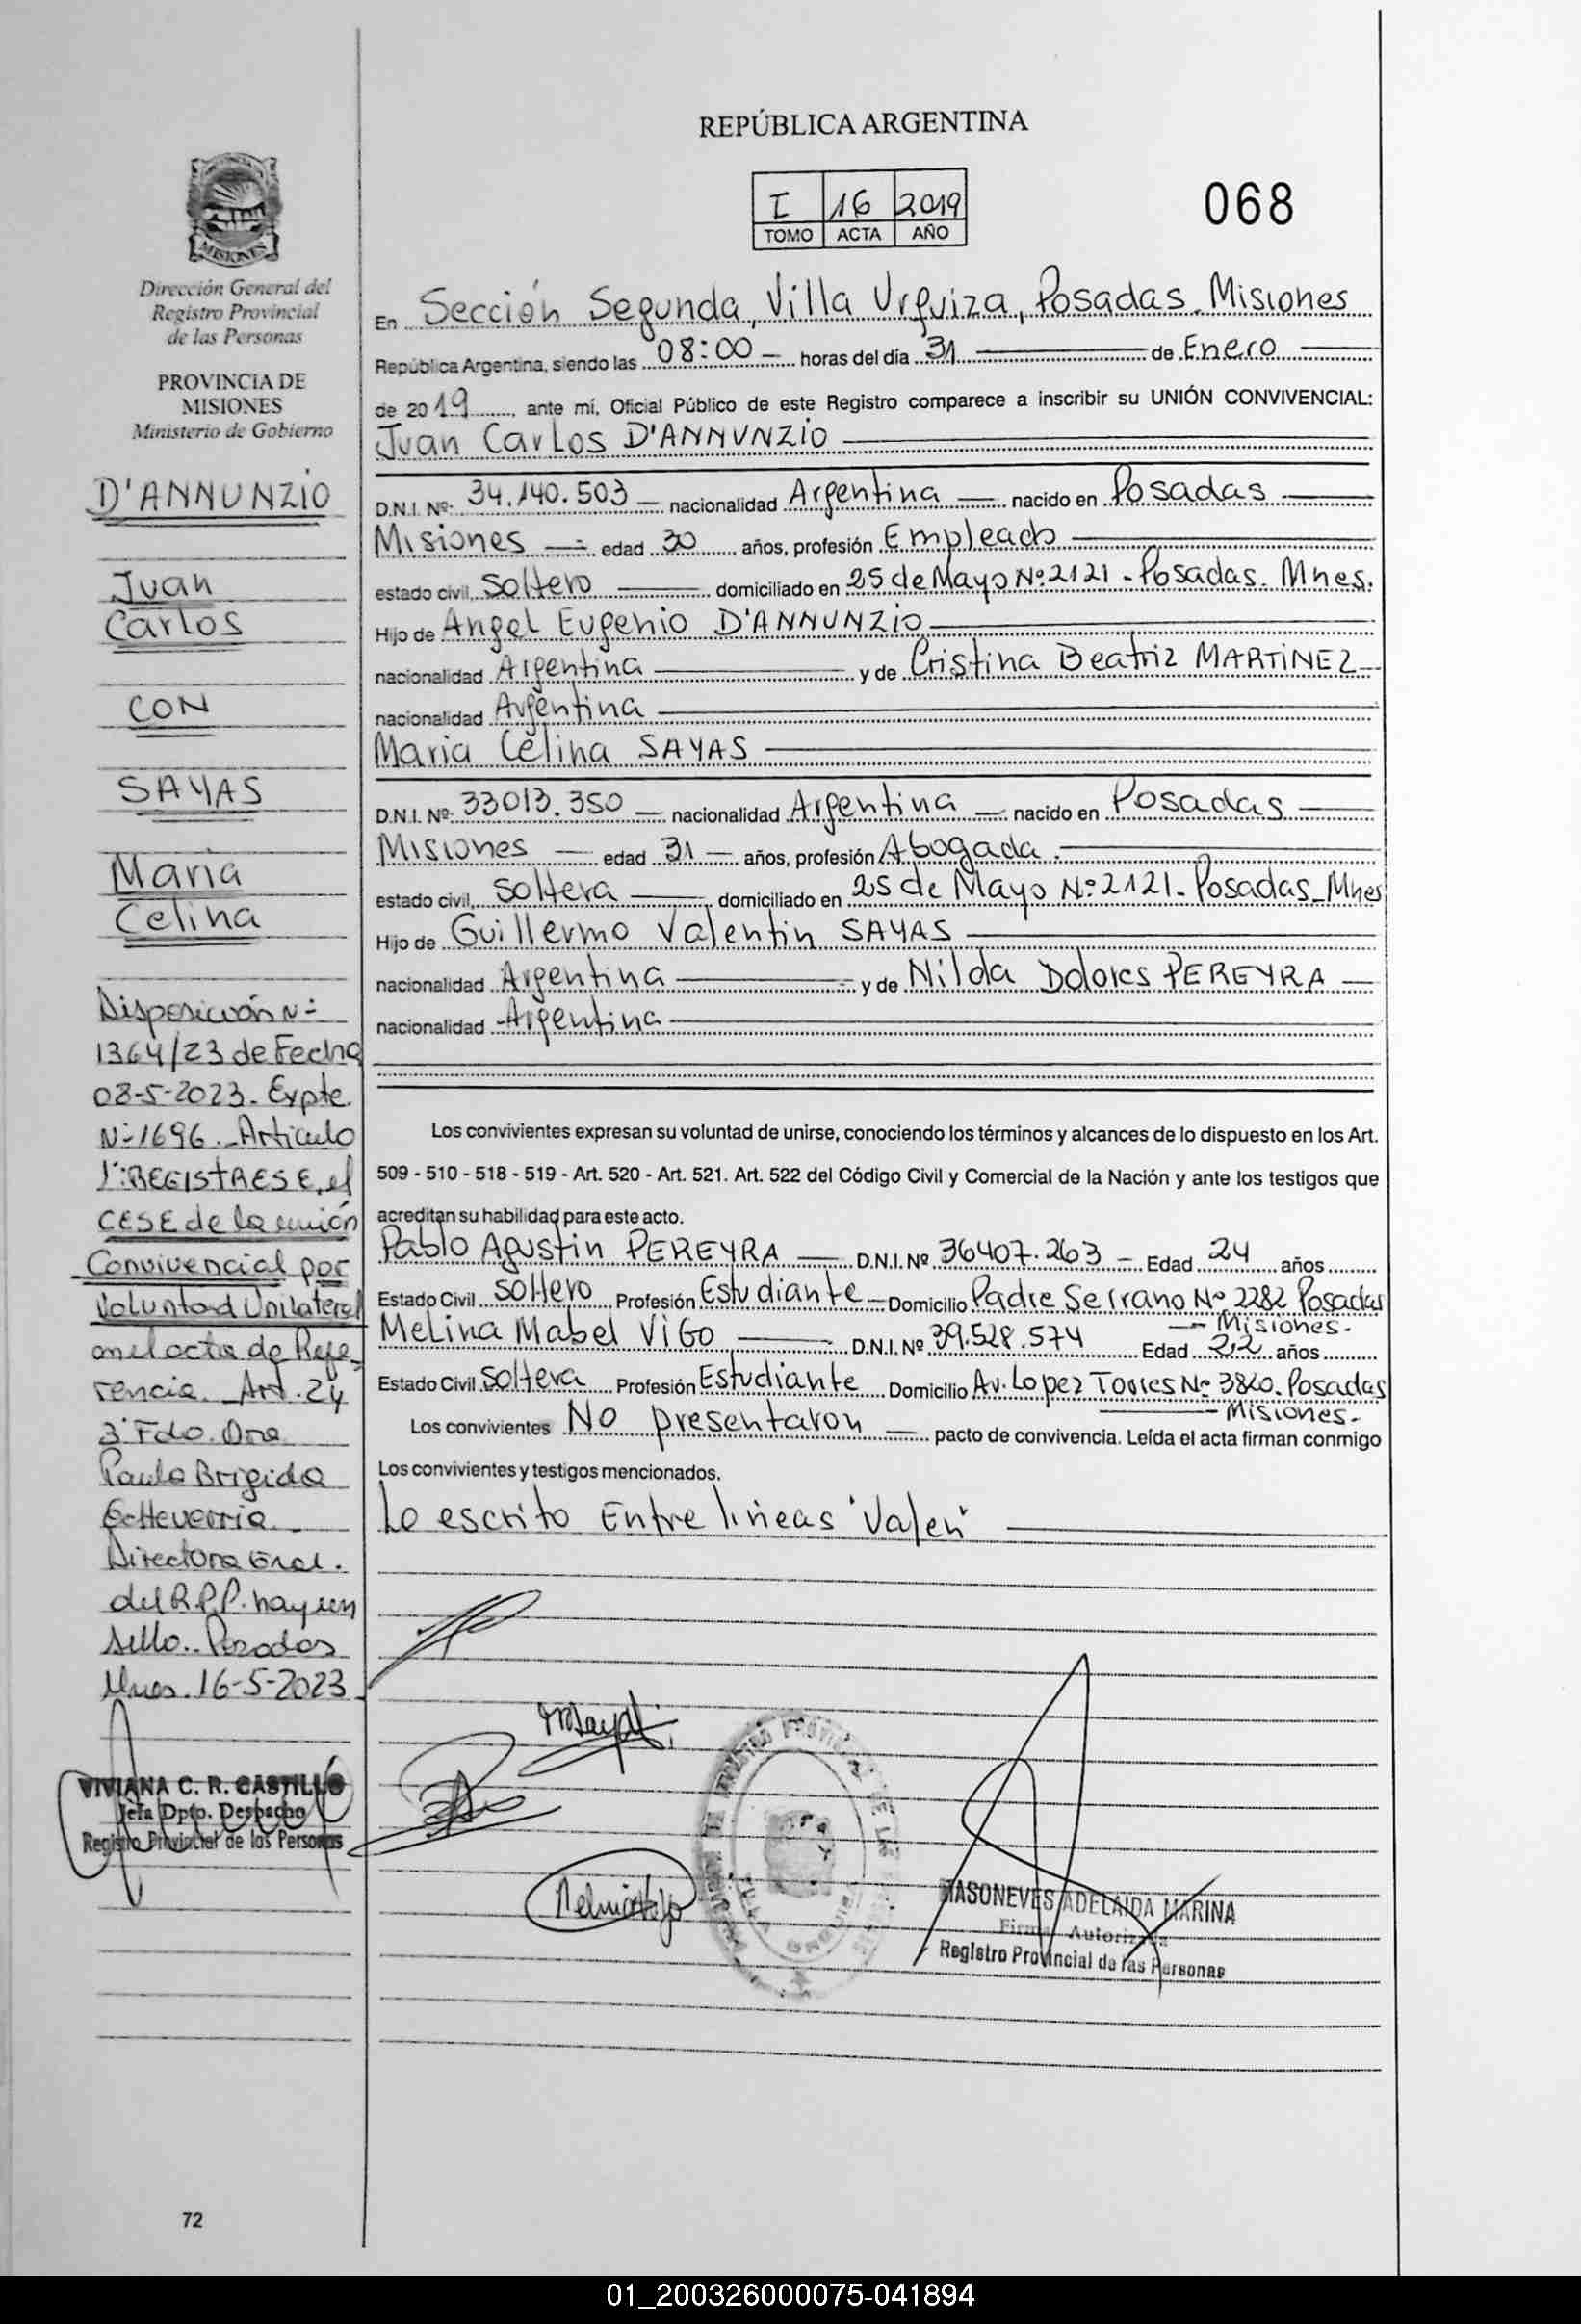 REPÚBLICA ARGENTINA
I 16 2019
TOMO ACTA AÑO
068
MISIONES
Dirección General del
Registro Provincial
de las Personas
PROVINCIA DE
MISIONES
Ministerio de Gobierno
D'ANNUNZIO
Juan
Carlos
CON
SAYAS
Maria
Celina
Disposición N-
1364/23 de Fecha
08-5-2023. Expte.
N-1696. Articulo
1°: REGISTRESE, el
CESE de la unión
Convivencial por
Voluntad Unilateral
en el acta de Refe-
rencia. Art. 24
3° Fdo. Dra
Paula Brigida
Echeverria
Directora Gral.
del R.P.P. hay un
sello.. Posadas
Mnes. 16-5-2023
VIVIANA C. R. CASTILLO
Jefa Dpto. Despacho
Registro Provincial de las Personas
72
En Sección Segunda, Villa Urquiza, Posadas. Misiones
República Argentina, siendo las 08:00 - horas del día 31 de Enero
de 2019, ante mí, Oficial Público de este Registro comparece a inscribir su UNIÓN CONVIVENCIAL:
Juan Carlos D'ANNUNZIO
D.N.I. Nº: 34.140.503 nacionalidad Argentina nacido en Posadas
Misiones edad 30 años, profesión Empleado
estado civil, Soltero domiciliado en 25 de Mayo Nº 2121 - Posadas. Mnes.
Hijo de Angel Eugenio D'ANNUNZIO
nacionalidad Argentina y de Cristina Beatriz MARTINEZ
nacionalidad Argentina
Maria Celina SAYAS
D.N.I. Nº: 33013.350 nacionalidad Argentina nacido en Posadas
Misiones edad 31 años, profesión Abogada.
estado civil, Soltera domiciliado en 25 de Mayo Nº 2121 - Posadas - Mnes
Hijo de Guillermo Valentin SAYAS
nacionalidad Argentina y de Nilda Dolores PEREYRA
nacionalidad Argentina
Los convivientes expresan su voluntad de unirse, conociendo los términos y alcances de lo dispuesto en los Art.
509 - 510 - 518 - 519 - Art. 520 - Art. 521. Art. 522 del Código Civil y Comercial de la Nación y ante los testigos que
acreditan su habilidad para este acto.
Pablo Agustin PEREYRA D.N.I. Nº 36407.263 - Edad 24 años
Estado Civil Soltero Profesión Estudiante Domicilio Padre Serrano Nº 2282 Posadas
Misiones.
Melina Mabel ViGo D.N.I. Nº 39.528.574 Edad 22 años
Estado Civil Soltera Profesión Estudiante Domicilio Av. Lopez Torres Nº 3840. Posadas
Misiones.
Los convivientes No presentaron pacto de convivencia. Leída el acta firman conmigo
Los convivientes y testigos mencionados.
Lo escrito Entre lineas "Valen"
MASONEVES ADELAIDA MARINA
Firma Autorizada
Registro Provincial de las Personas
01_200326000075-041894